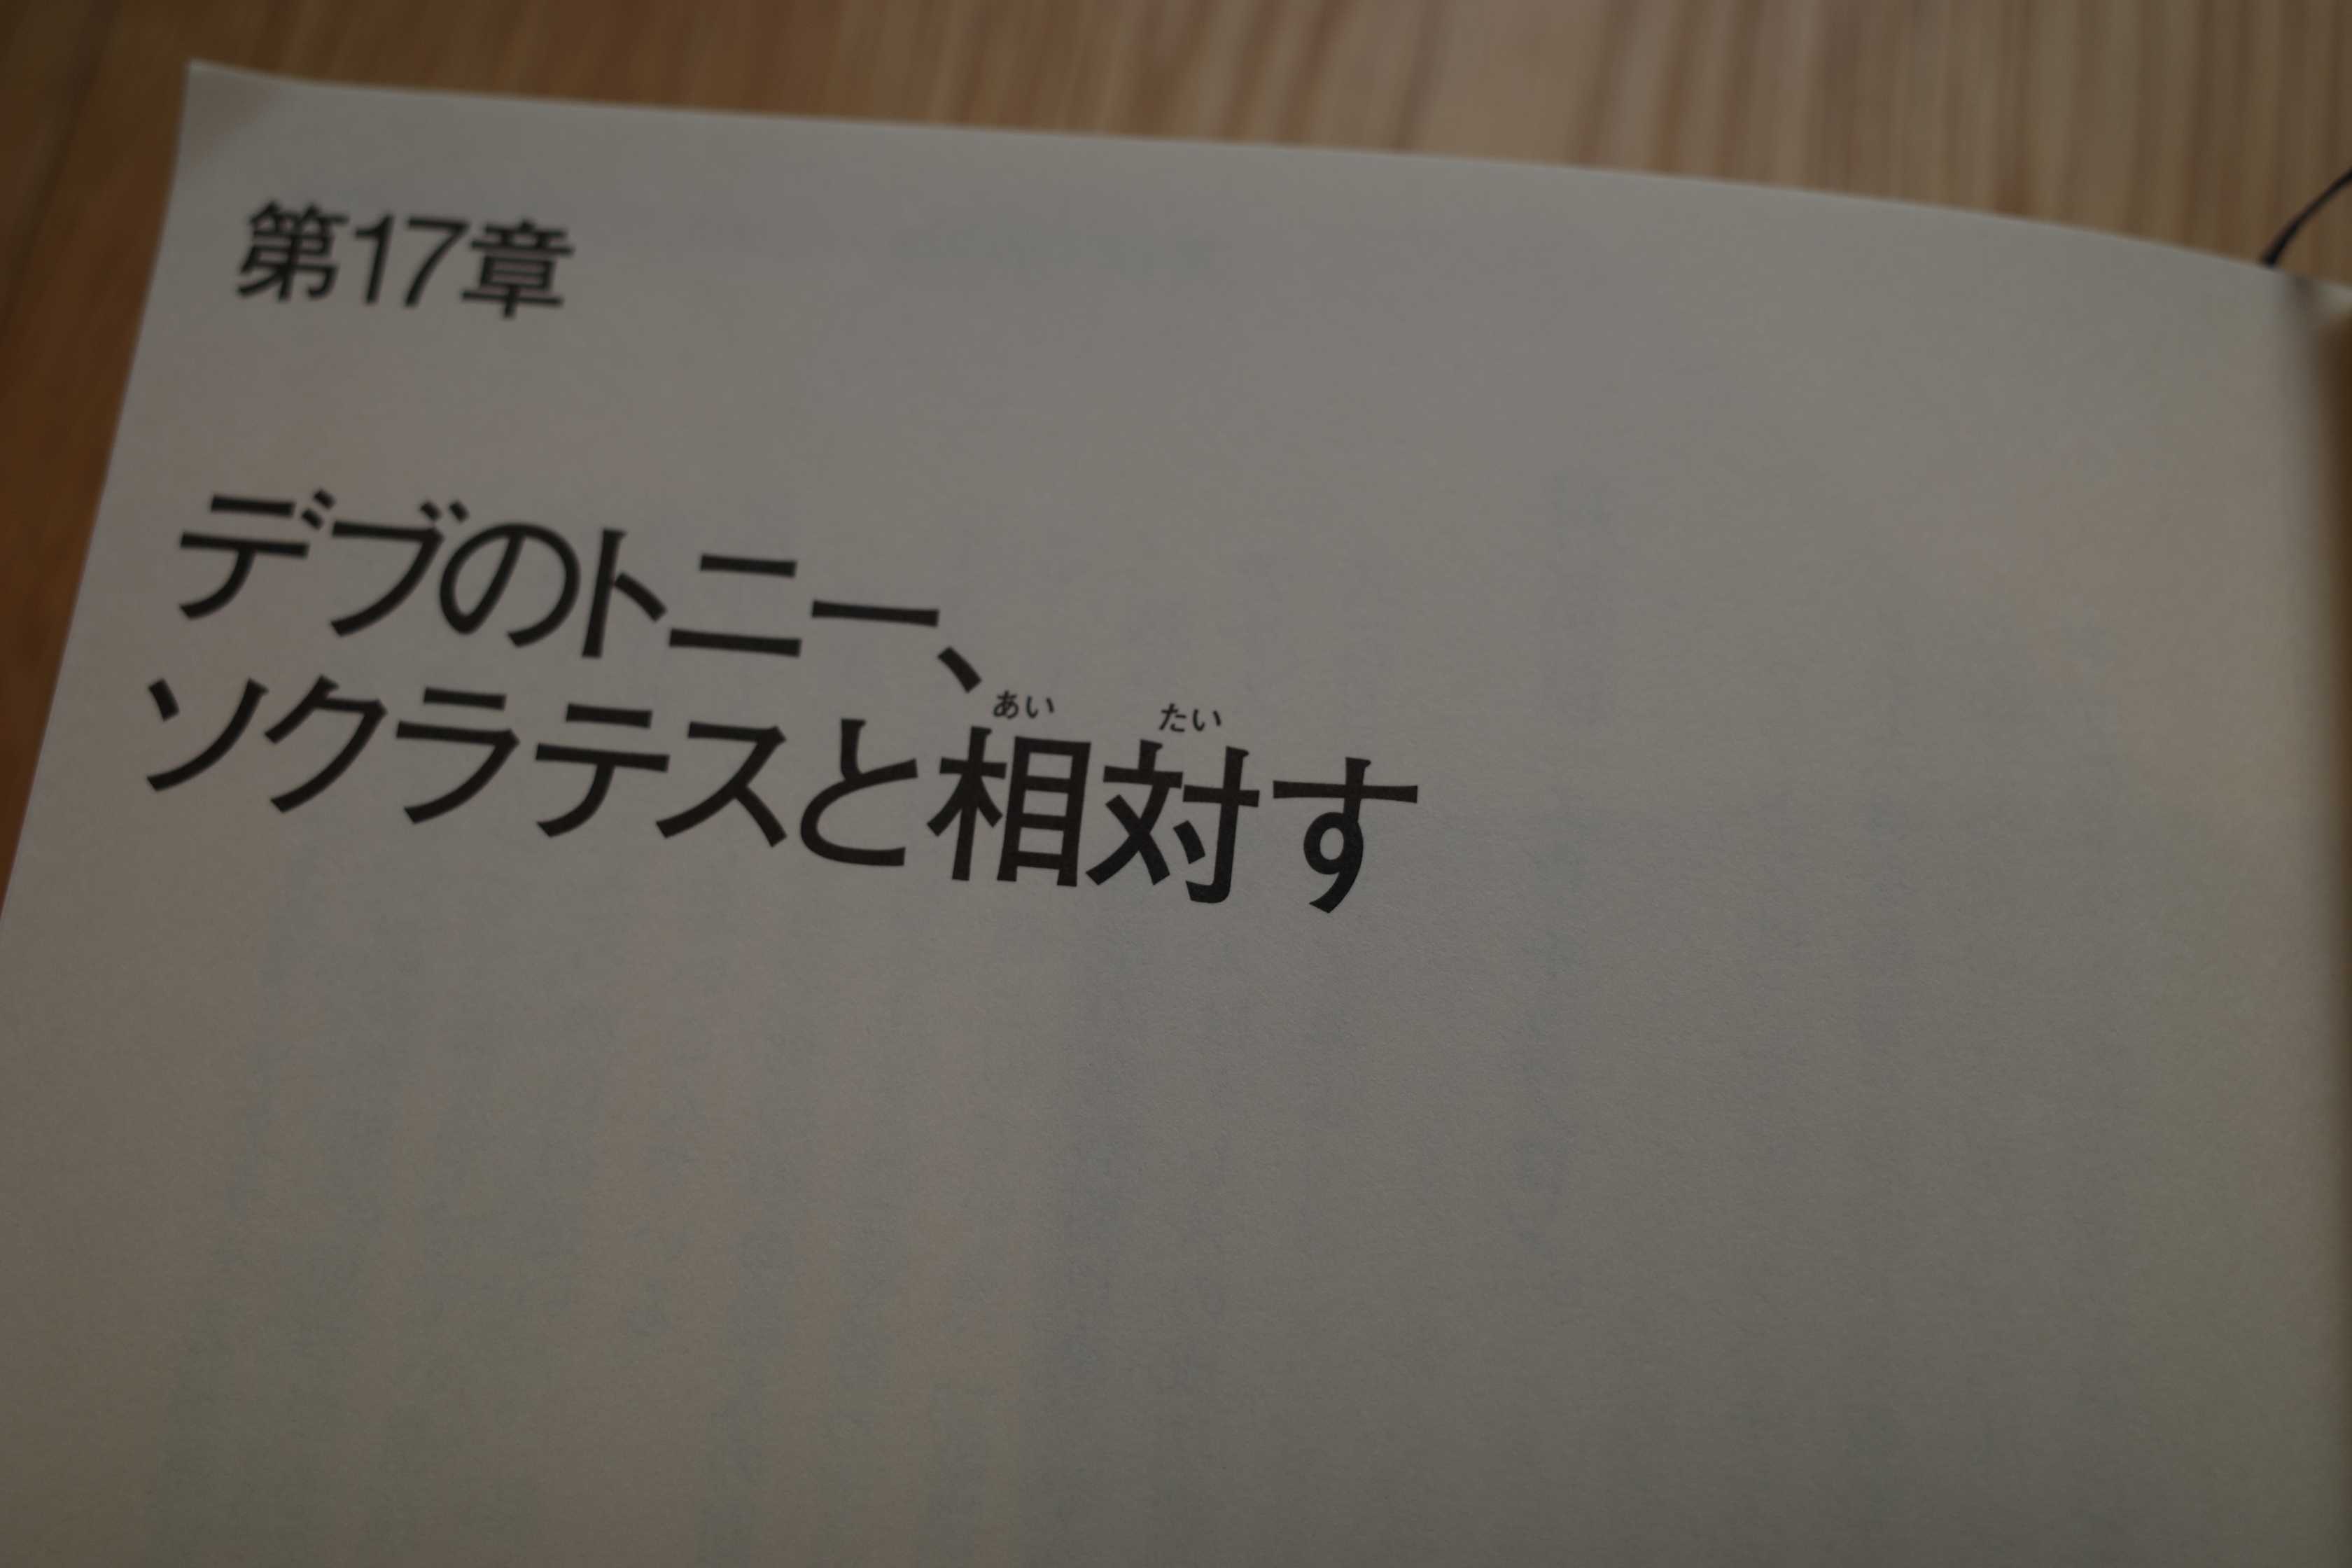 第17章
デブのトニー、
あい たい
ソクラテスと相対す